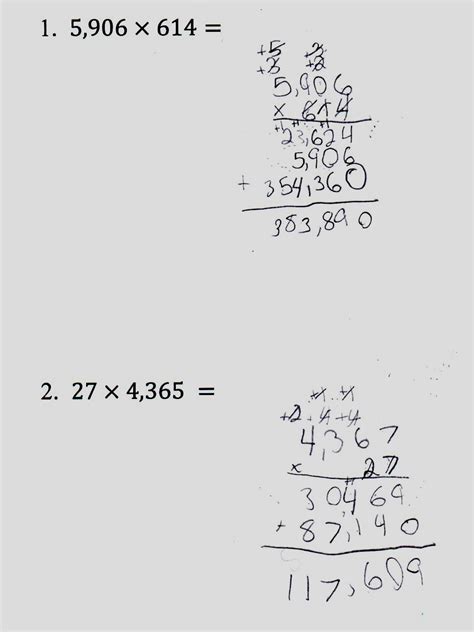 1. 5,906 × 614 =
+5 +3
+3 +2
5,906
× 614
+1 +1 +1
23,624
5,906
+ 354,360
383,890
2. 27 × 4,365 =
+1 +1
+2 +4 +4
4,367
× 27
+1
30469
+ 87,140
117,609